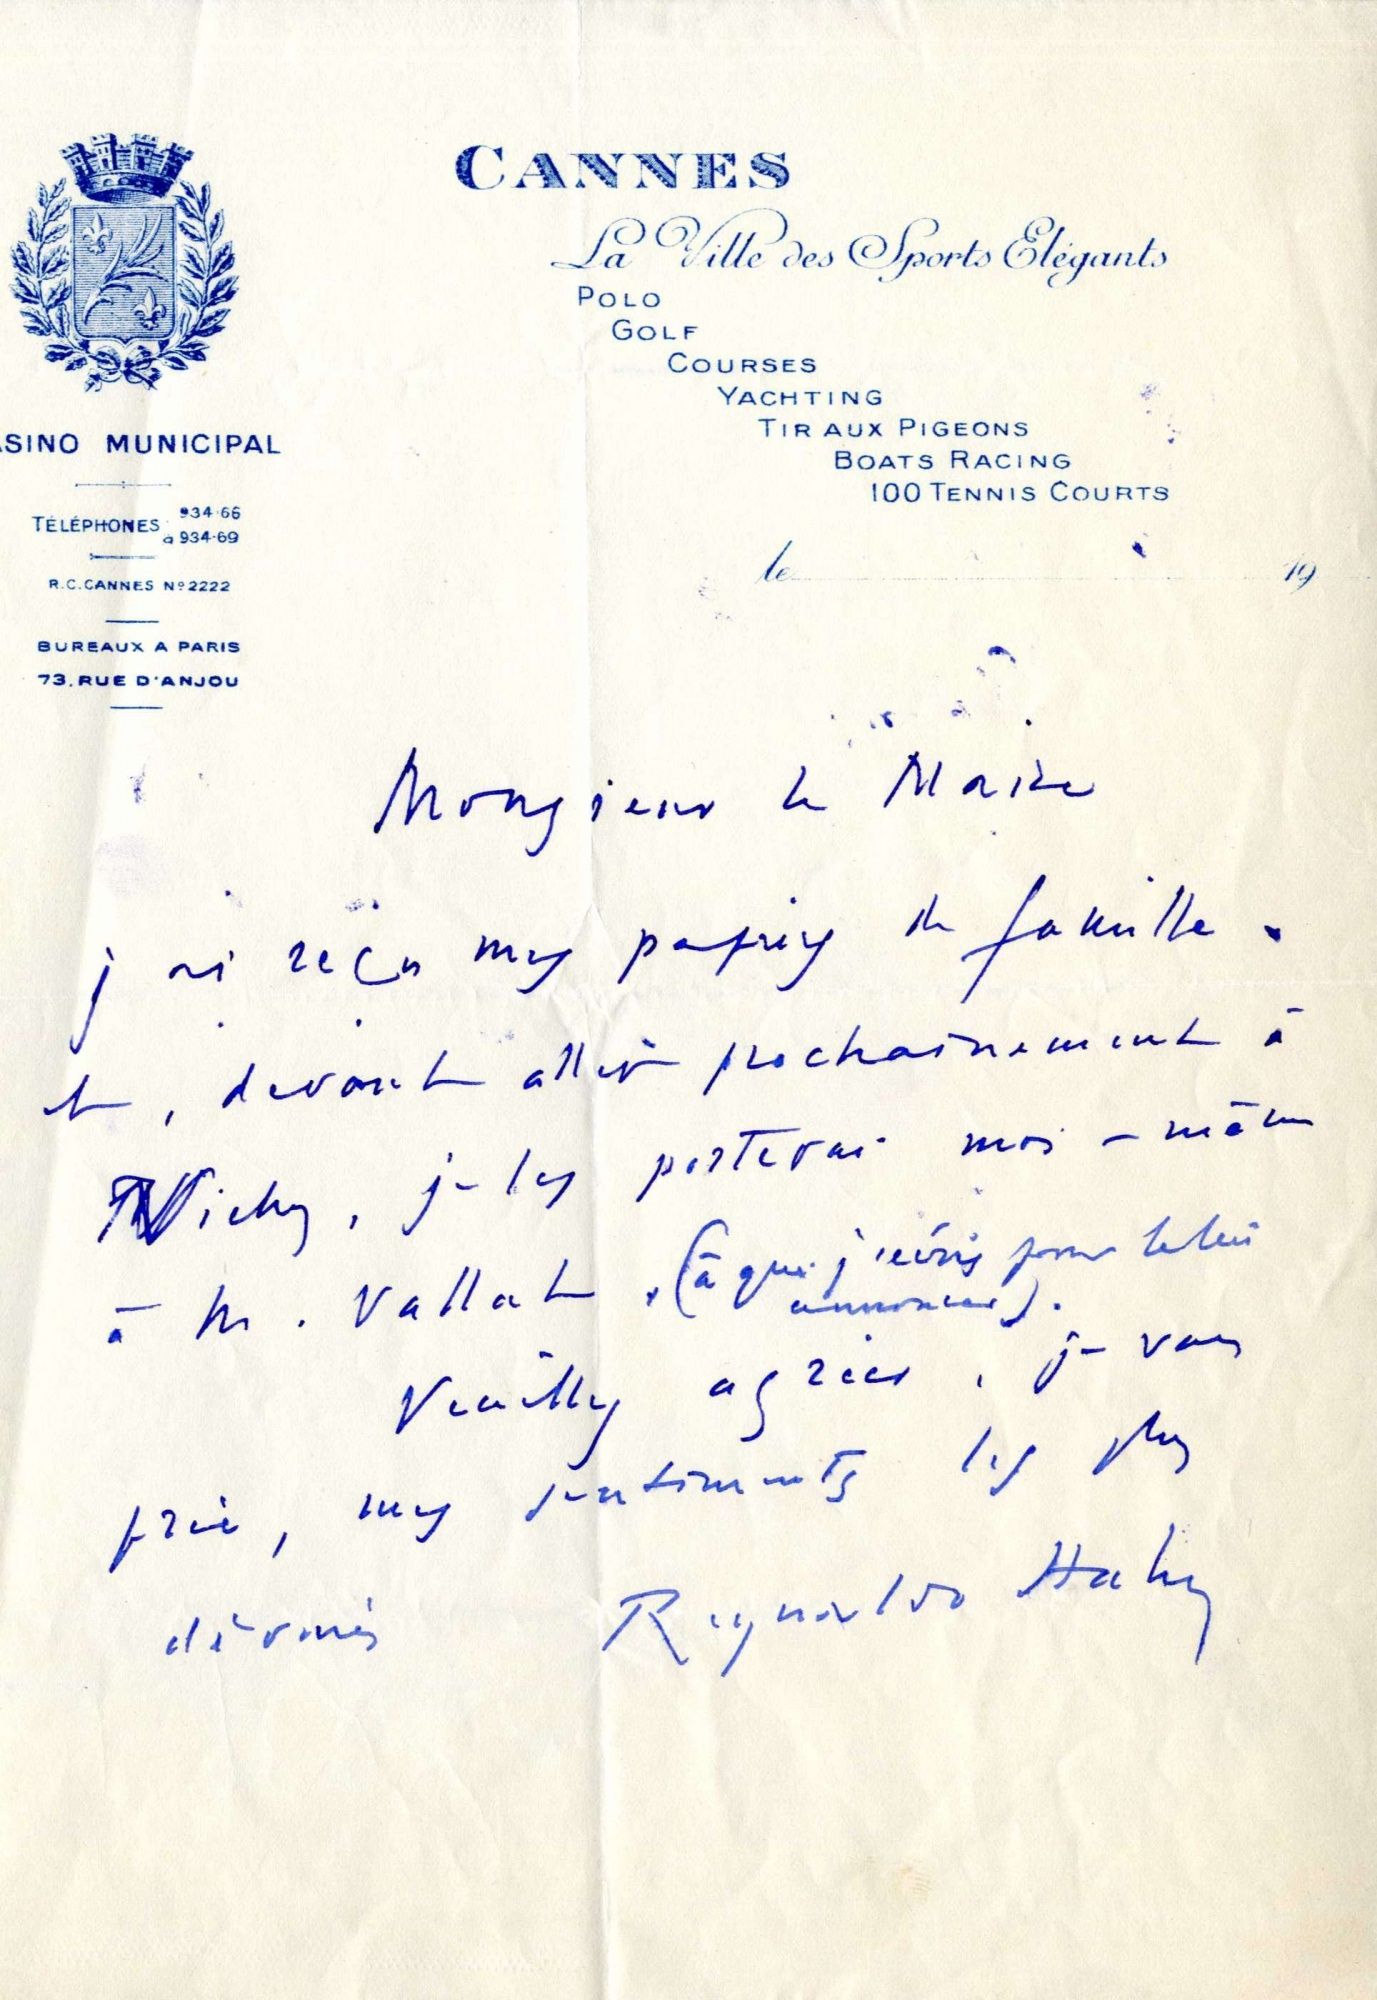 CANNES
La Ville des Sports Elégants
POLO
GOLF
COURSES
YACHTING
TIR AUX PIGEONS
BOATS RACING
100 TENNIS COURTS
ASINO MUNICIPAL
TÉLÉPHONES 934·66
à 934·69
R.C. CANNES Nº 2222
BUREAUX A PARIS
73, RUE D'ANJOU
le 19
Monsieur le Maire
j'ai reçu mes papiers de famille.
et, devant aller prochainement à
Vichy, je les porterai moi-même
à M. Vallat. (à qui j'écris pour le lui
annoncer).
Veuillez agréer, je vous
prie, mes sentiments les plus
dévoués
Reynaldo Hahn